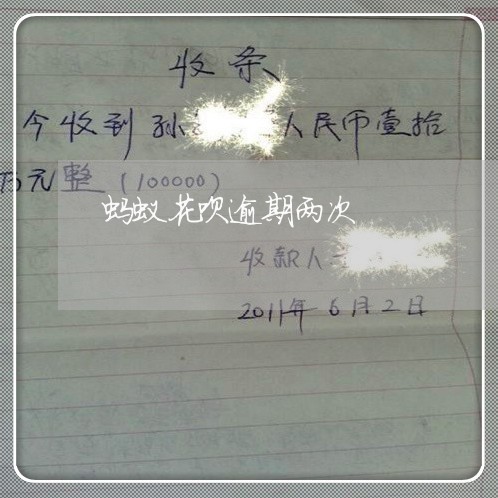 收条
今收到孙 人民币壹拾
万元整(100000)
蚂蚁花呗逾期两次
收款人
2011年6月2日